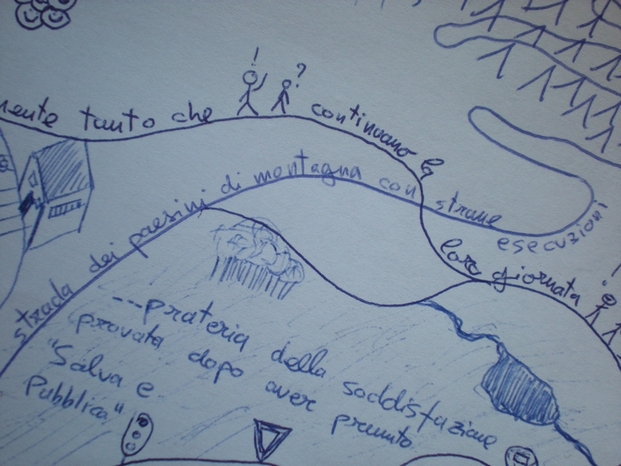 mente tanto che ! ? continuano la
loro giornata !
strada dei paesini di montagna con strane esecuzioni
---prateria della soddisfazione
provata dopo aver premuto
"Salva e
Pubblica"